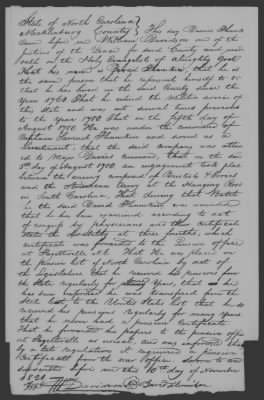 State of North Carolina
Mecklenburg County This day David
came before me William Davidson one of the
Justices of the Peace for said County and made
oath on the Holy Evangelists of Almighty God
that his name is he is
the same person that he represents himself to be
that he has lived in the said County since the
Year 1764 That he entered the Militia Service of
this State and was out several times previous
to the Year 1780 That on the fifth day of
August 1780 He was under the command of
Captain Samuel and served as a
Lieutenant, that the said company was attached
to Major Davies command, that on the said
5th day of August 1780 an engagement took place
between the enemy composed of British & Tories
and the American Army at the Hanging Rock
in South Carolina, That during that Battle
the said David was wounded
that he has been examined according to act
of Congress by physicians and the certificate
State the disability at three fourths, which
certificate was forwarded to the Pension office
at Fayetteville N.C. That He was placed on
the pension list of North Carolina by act of
the Legislature that he received his pensions from
the State regularly for Years, that he
has been informed he was transferred from the
State list to the United States list that he
received his pensions regularly for many years
that he never had a pension Certificate
That he forwarded his papers to the pension office
at Fayetteville as usual, and was informed that
by a late regulation it required a pension
Certificate from the war office. Sworn to and
subscribed before me this 10th day of November
Test Wm Davidson